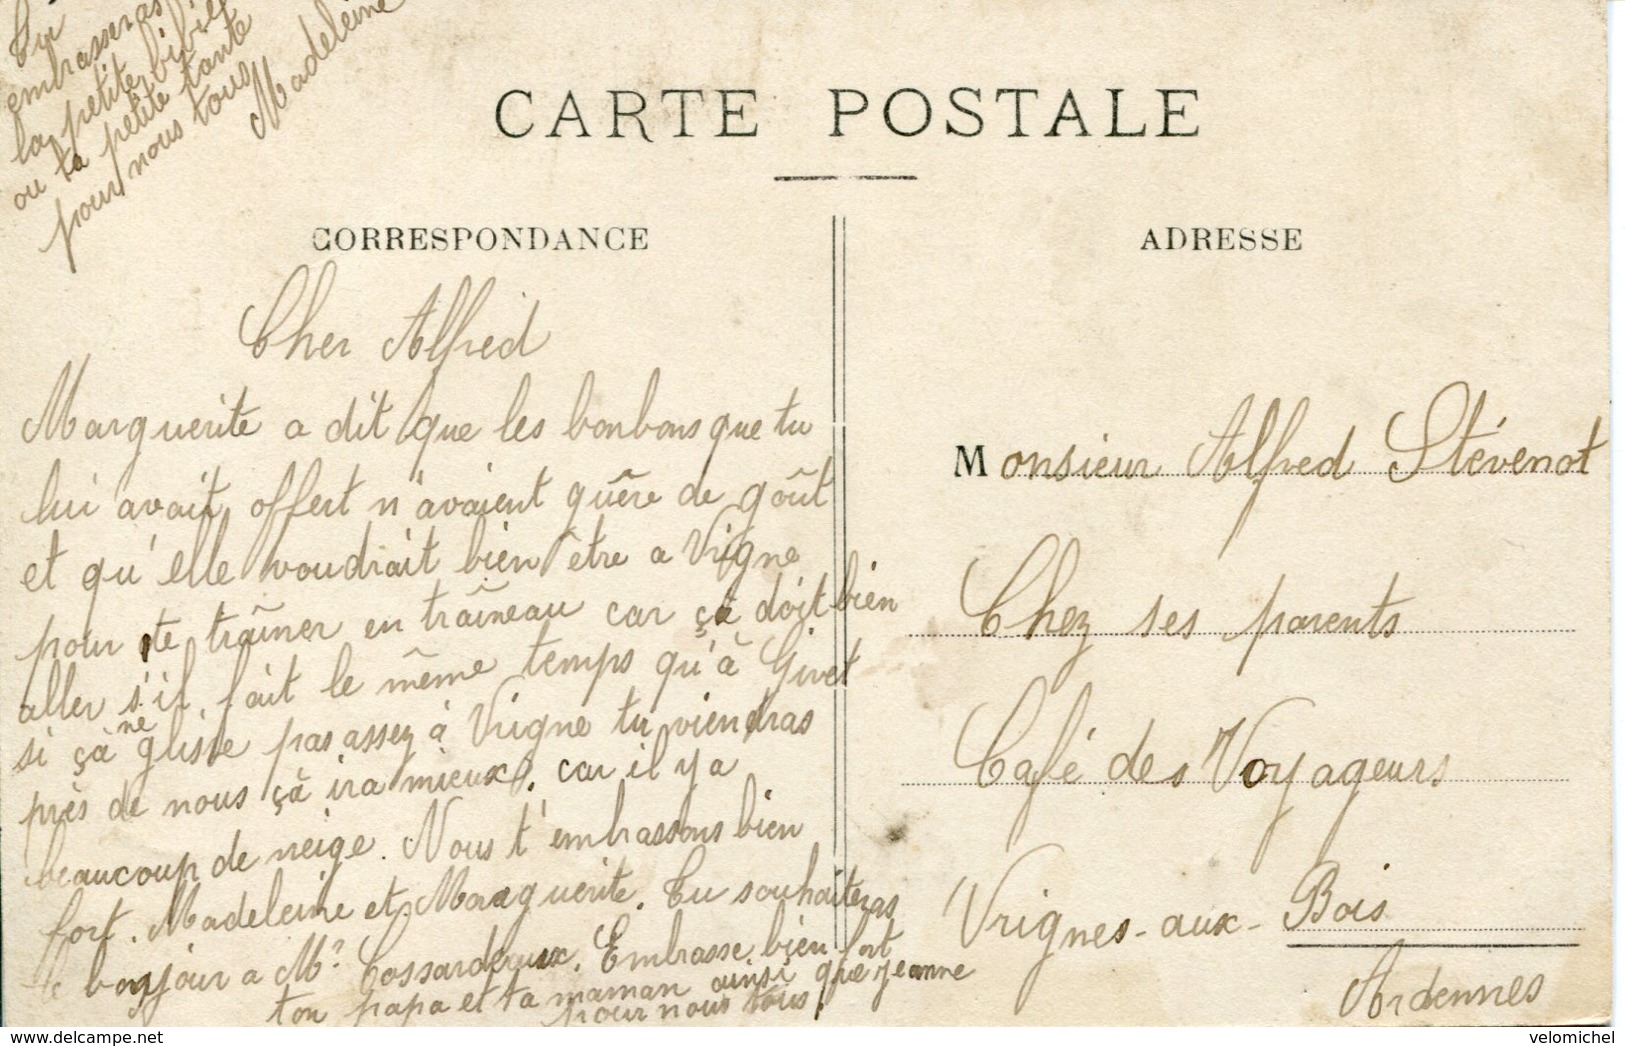 Tu
embrasseras
la petite bibi
ou ta petite tante
pour nous tous
Madeleine
CARTE POSTALE
CORRESPONDANCE
ADRESSE
Cher Alfred
Marguerite a dit que les bonbons que tu
lui avait offert n'avaient quêre de goût
et qu'elle voudrait bien être a Vrigne
pour te traîner en traîneau car çà doit bien
aller s'il fait le même temps qu'à Givet
si çà ne glisse pas assez à Vrigne tu viendras
près de nous çà ira mieux, car il y a
beaucoup de neige. Nous t'embrassons bien
fort. Madeleine et Marguerite. Tu souhaiteras
le bonjour a Mr Cossardeaux. Embrasse bien fort
ton papa et ta maman ainsi que Jeanne
pour nous tous.
Monsieur Alfred Stévenot
Chez ses parents
Café des Voyageurs
Vrignes-aux-Bois
Ardennes
delcampe.net
velomichel